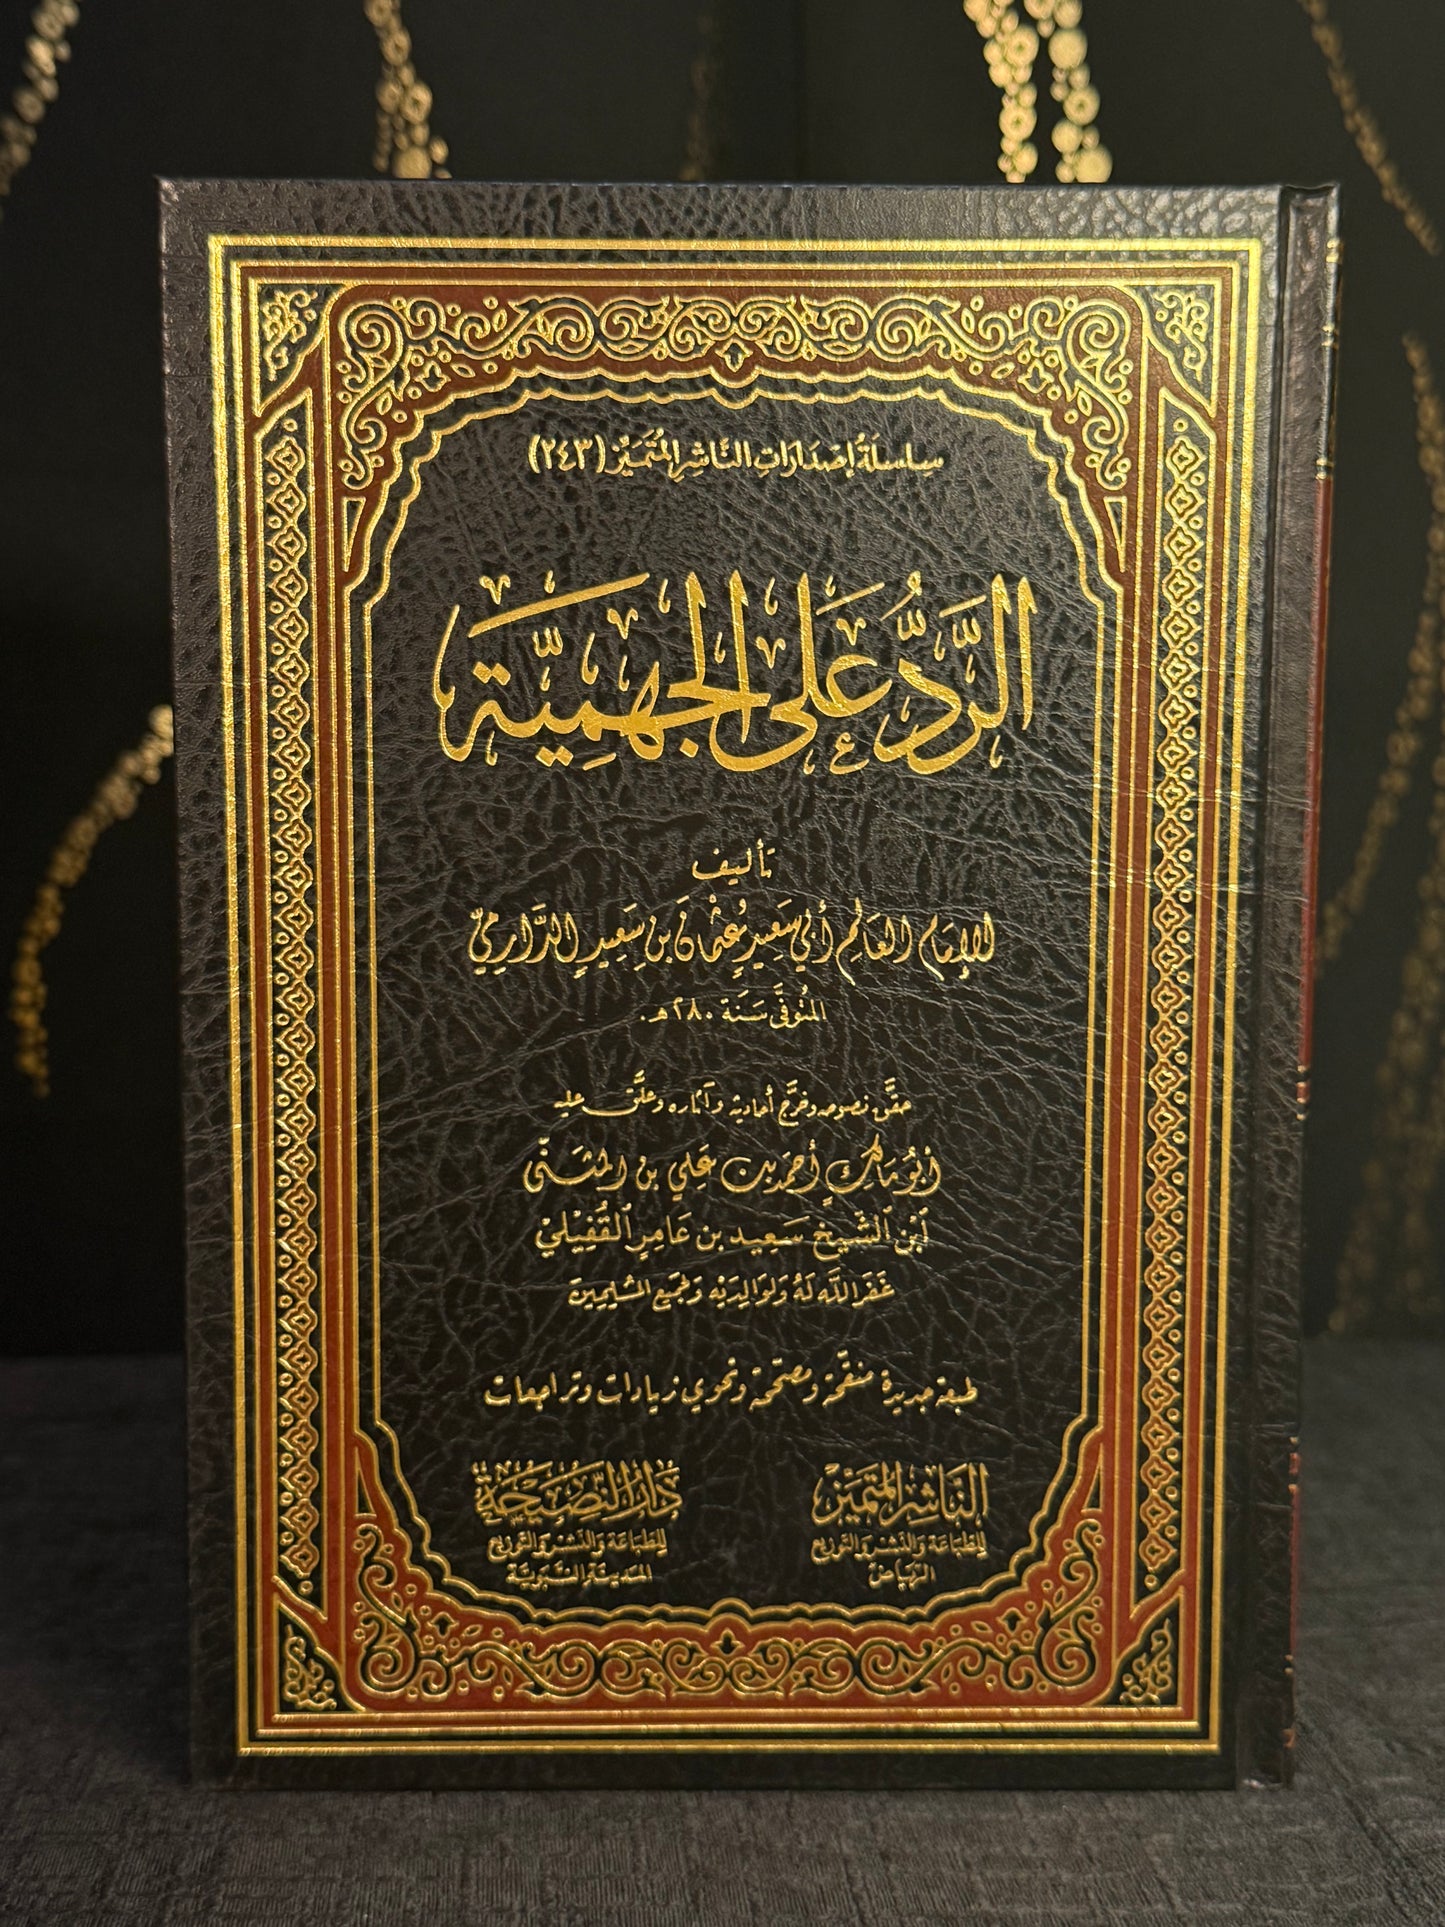 سلسلة إصدارات الناشر المتميز (٢٤٣)
الرَّدُّ عَلَى الجَهْمِيَّة
تأليف
الإمَام العَالِم أبي سَعِيدٍ عُثْمَانَ بن سَعِيدٍ الدَّارِمِيِّ
المُتَوفَّى سَنَة ٢٨٠ هـ.
حقَّق نصوصه وخرَّج أحاديثه وآثاره وعلَّق عليه
أبُو مَالِكٍ أحمَد بن عَلِي بن المُثَنَّى
ابْن الشَّيخ سَعِيد بن عَامِرٍ القُفَيْلِيْ
غَفَرَ اللَّه لَهُ وَلِوَالِدَيْهِ وَلجَمِيعِ المُسْلِمِينَ
طبعة جديدة منقَّحة ومصحَّحة وتحوي زيادات وتراجعات
الناشر المتميز
للطباعة والنشر والتوزيع
الرياض
دَارُ النَّصِيحَة
للطباعة والنشر والتوزيع
المدينة النبوية